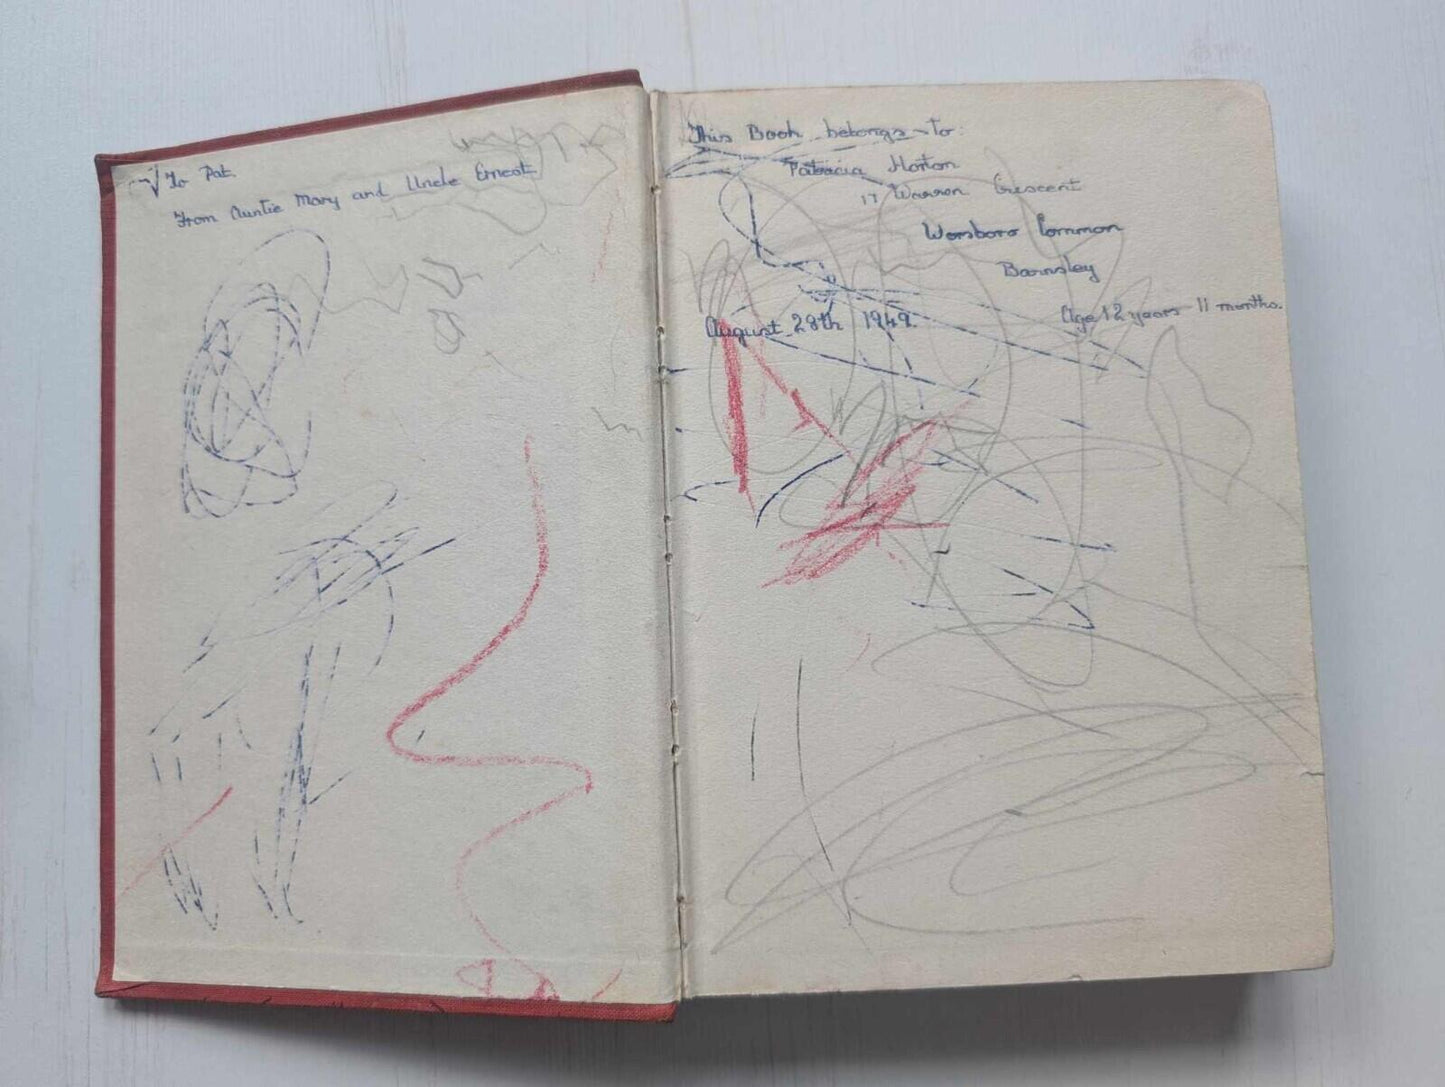 To Pat.
From Auntie Mary and Uncle Ernest
This Book belongs to:
Patricia Horton
17 Warren Crescent
Worsboro Common
Barnsley
Age 12 years 11 months.
August 28th 1949.